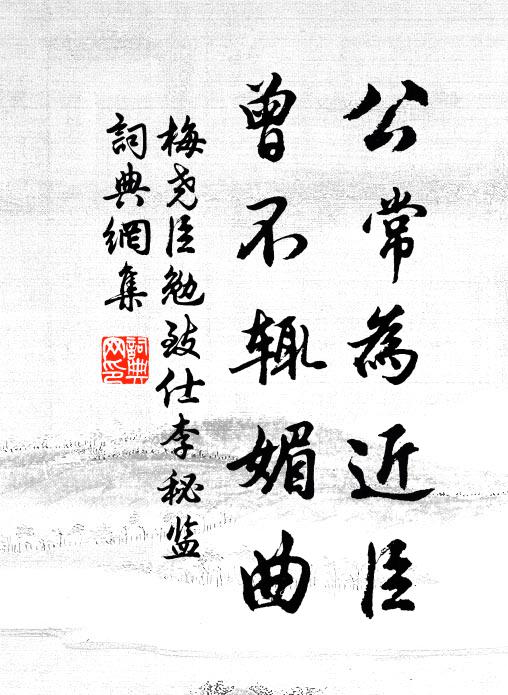 公常為近臣
曾不辄媚曲
梅尧臣勉致仕李秘监
詞典網集
詞典网印